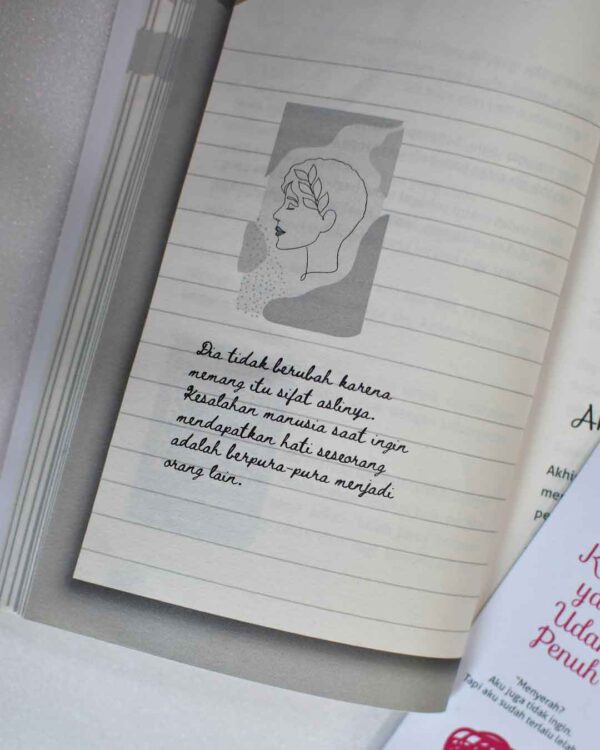 Dia tidak berubah karena
memang itu sifat aslinya.
Kesalahan manusia saat ingin
mendapatkan hati seseorang
adalah berpura-pura menjadi
orang lain.
"Menyerah?
Aku juga tidak ingin.
Tapi aku sudah terlalu lelah
Penuh